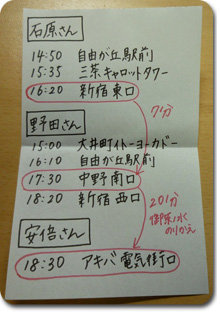 石原さん
14:50 自由が丘駅前
15:35 三茶キャロットタワー
16:20 新宿東口
7分
野田さん
15:00 大井町イトーヨーカドー
16:10 自由が丘駅前
17:30 中野南口
18:20 新宿西口
20分
御茶ノ水
のりかえ
安倍さん
18:30 アキバ電気街口